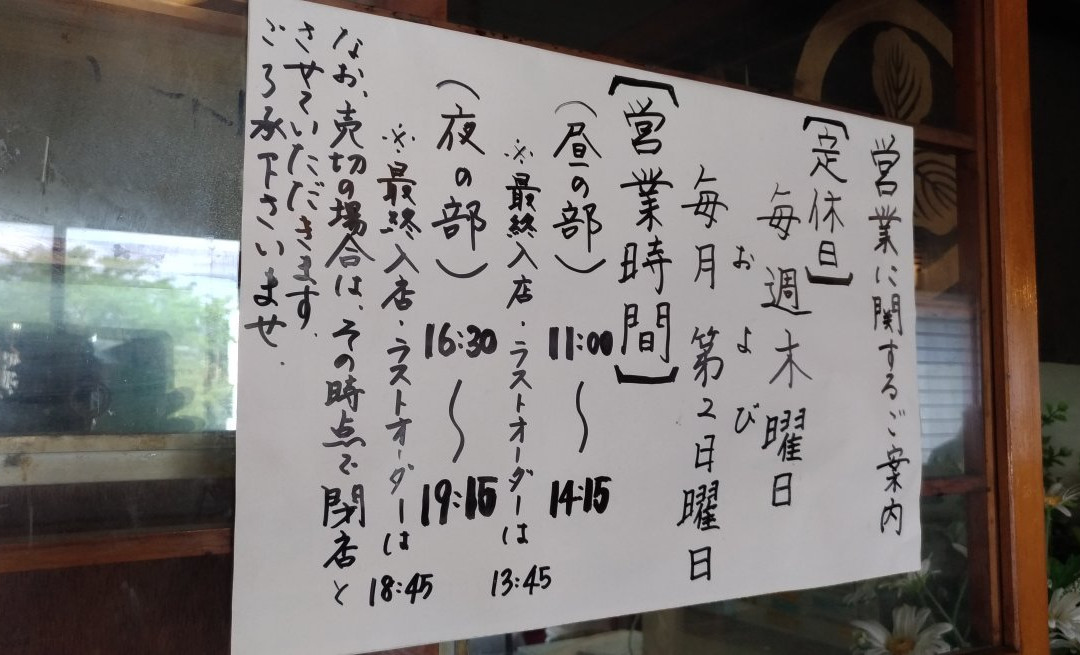 営業に関するご案内
【定休日】
毎週木曜日
および
毎月第2日曜日
【営業時間】
（昼の部） 11:00〜14:15
※最終入店・ラストオーダーは 13:45
（夜の部） 16:30〜19:15
※最終入店・ラストオーダーは 18:45
なお、売切の場合は、その時点で閉店と
させていただきます.
ご了承下さいませ.